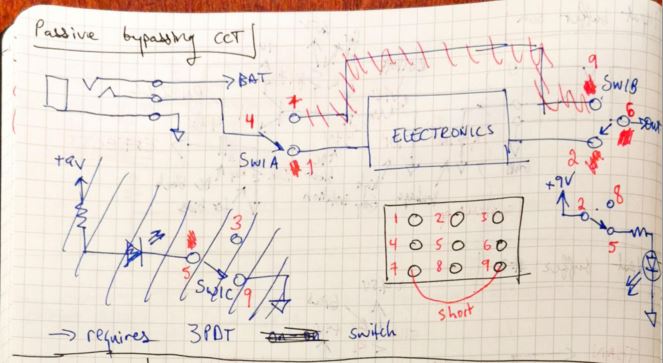 Passive bypassing CCT
→ BAT
9
SW1B
7
4
6
→ out
ELECTRONICS
SW1A
1
2
+9V
+9V
2
8
5
3
5
SW1C
9
1 2 3
4 5 6
7 8 9
short
→ requires 3PDT switch